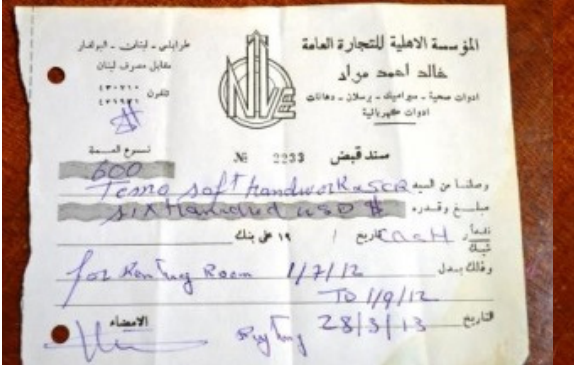 المؤسسة الاهلية للتجارة العامة
خالد احمد مراد
ادوات صحية - سيراميك - برسلان - دهانات
ادوات كهربائية
طرابلس - لبنان - البولفار
مقابل مصرف لبنان
تلفون ٤٣٠٧١٠
$
سند قبض
№ 2233
نوع العملة
600
وصلنا من السيد Temo soft handwork
مبلغ وقدره six Hundred USD $
نقداً CasH تاريخ / ١٩ على بنك
شيك
وذلك بدل for Renting Room 1/7/12
TO 1/9/12
التاريخ 28/3/13
الامضاء